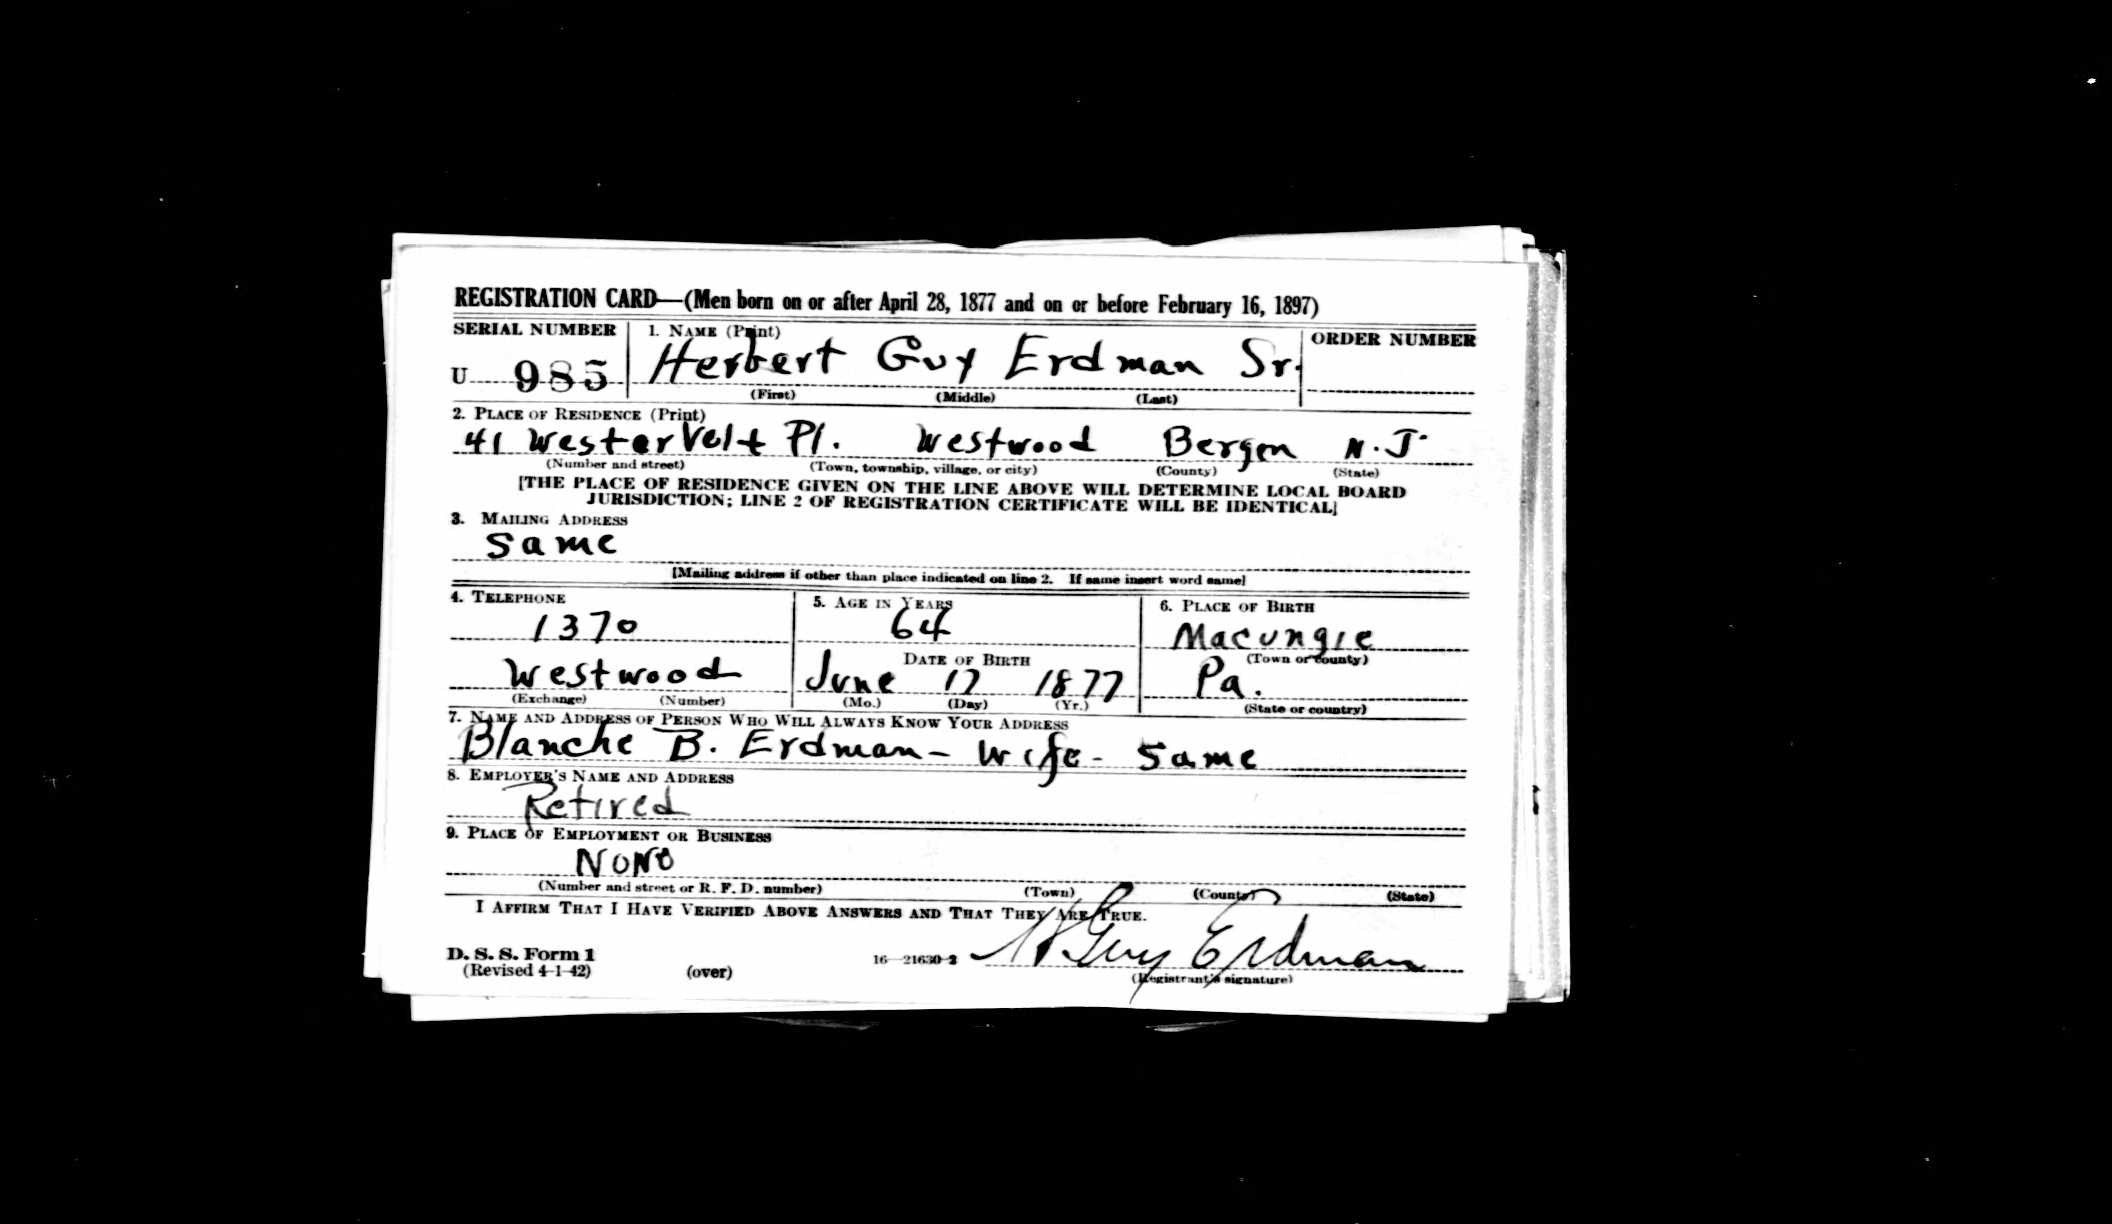 REGISTRATION CARD—(Men born on or after April 28, 1877 and on or before February 16, 1897)
SERIAL NUMBER 1. NAME (Print) ORDER NUMBER
U 985 Herbert Guy Erdman Sr.
(First) (Middle) (Last)
2. PLACE OF RESIDENCE (Print)
41 Westervelt Pl. Westwood Bergen N.J.
(Number and street) (Town, township, village, or city) (County) (State)
[THE PLACE OF RESIDENCE GIVEN ON THE LINE ABOVE WILL DETERMINE LOCAL BOARD
JURISDICTION; LINE 2 OF REGISTRATION CERTIFICATE WILL BE IDENTICAL]
3. MAILING ADDRESS
Same
[Mailing address if other than place indicated on line 2. If same insert word same]
4. TELEPHONE 5. AGE IN YEARS 6. PLACE OF BIRTH
1370 64 Macungie
DATE OF BIRTH (Town or county)
Westwood June 17 1877 Pa.
(Exchange) (Number) (Mo.) (Day) (Yr.) (State or country)
7. NAME AND ADDRESS OF PERSON WHO WILL ALWAYS KNOW YOUR ADDRESS
Blanche B. Erdman - Wife - Same
8. EMPLOYER'S NAME AND ADDRESS
Retired
9. PLACE OF EMPLOYMENT OR BUSINESS
None
(Number and street or R. F. D. number) (Town) (County) (State)
I AFFIRM THAT I HAVE VERIFIED ABOVE ANSWERS AND THAT THEY ARE TRUE.
D. S. S. Form 1
(Revised 4-1-42) (over) 16—21630-2 H Guy Erdman
(Registrant's signature)